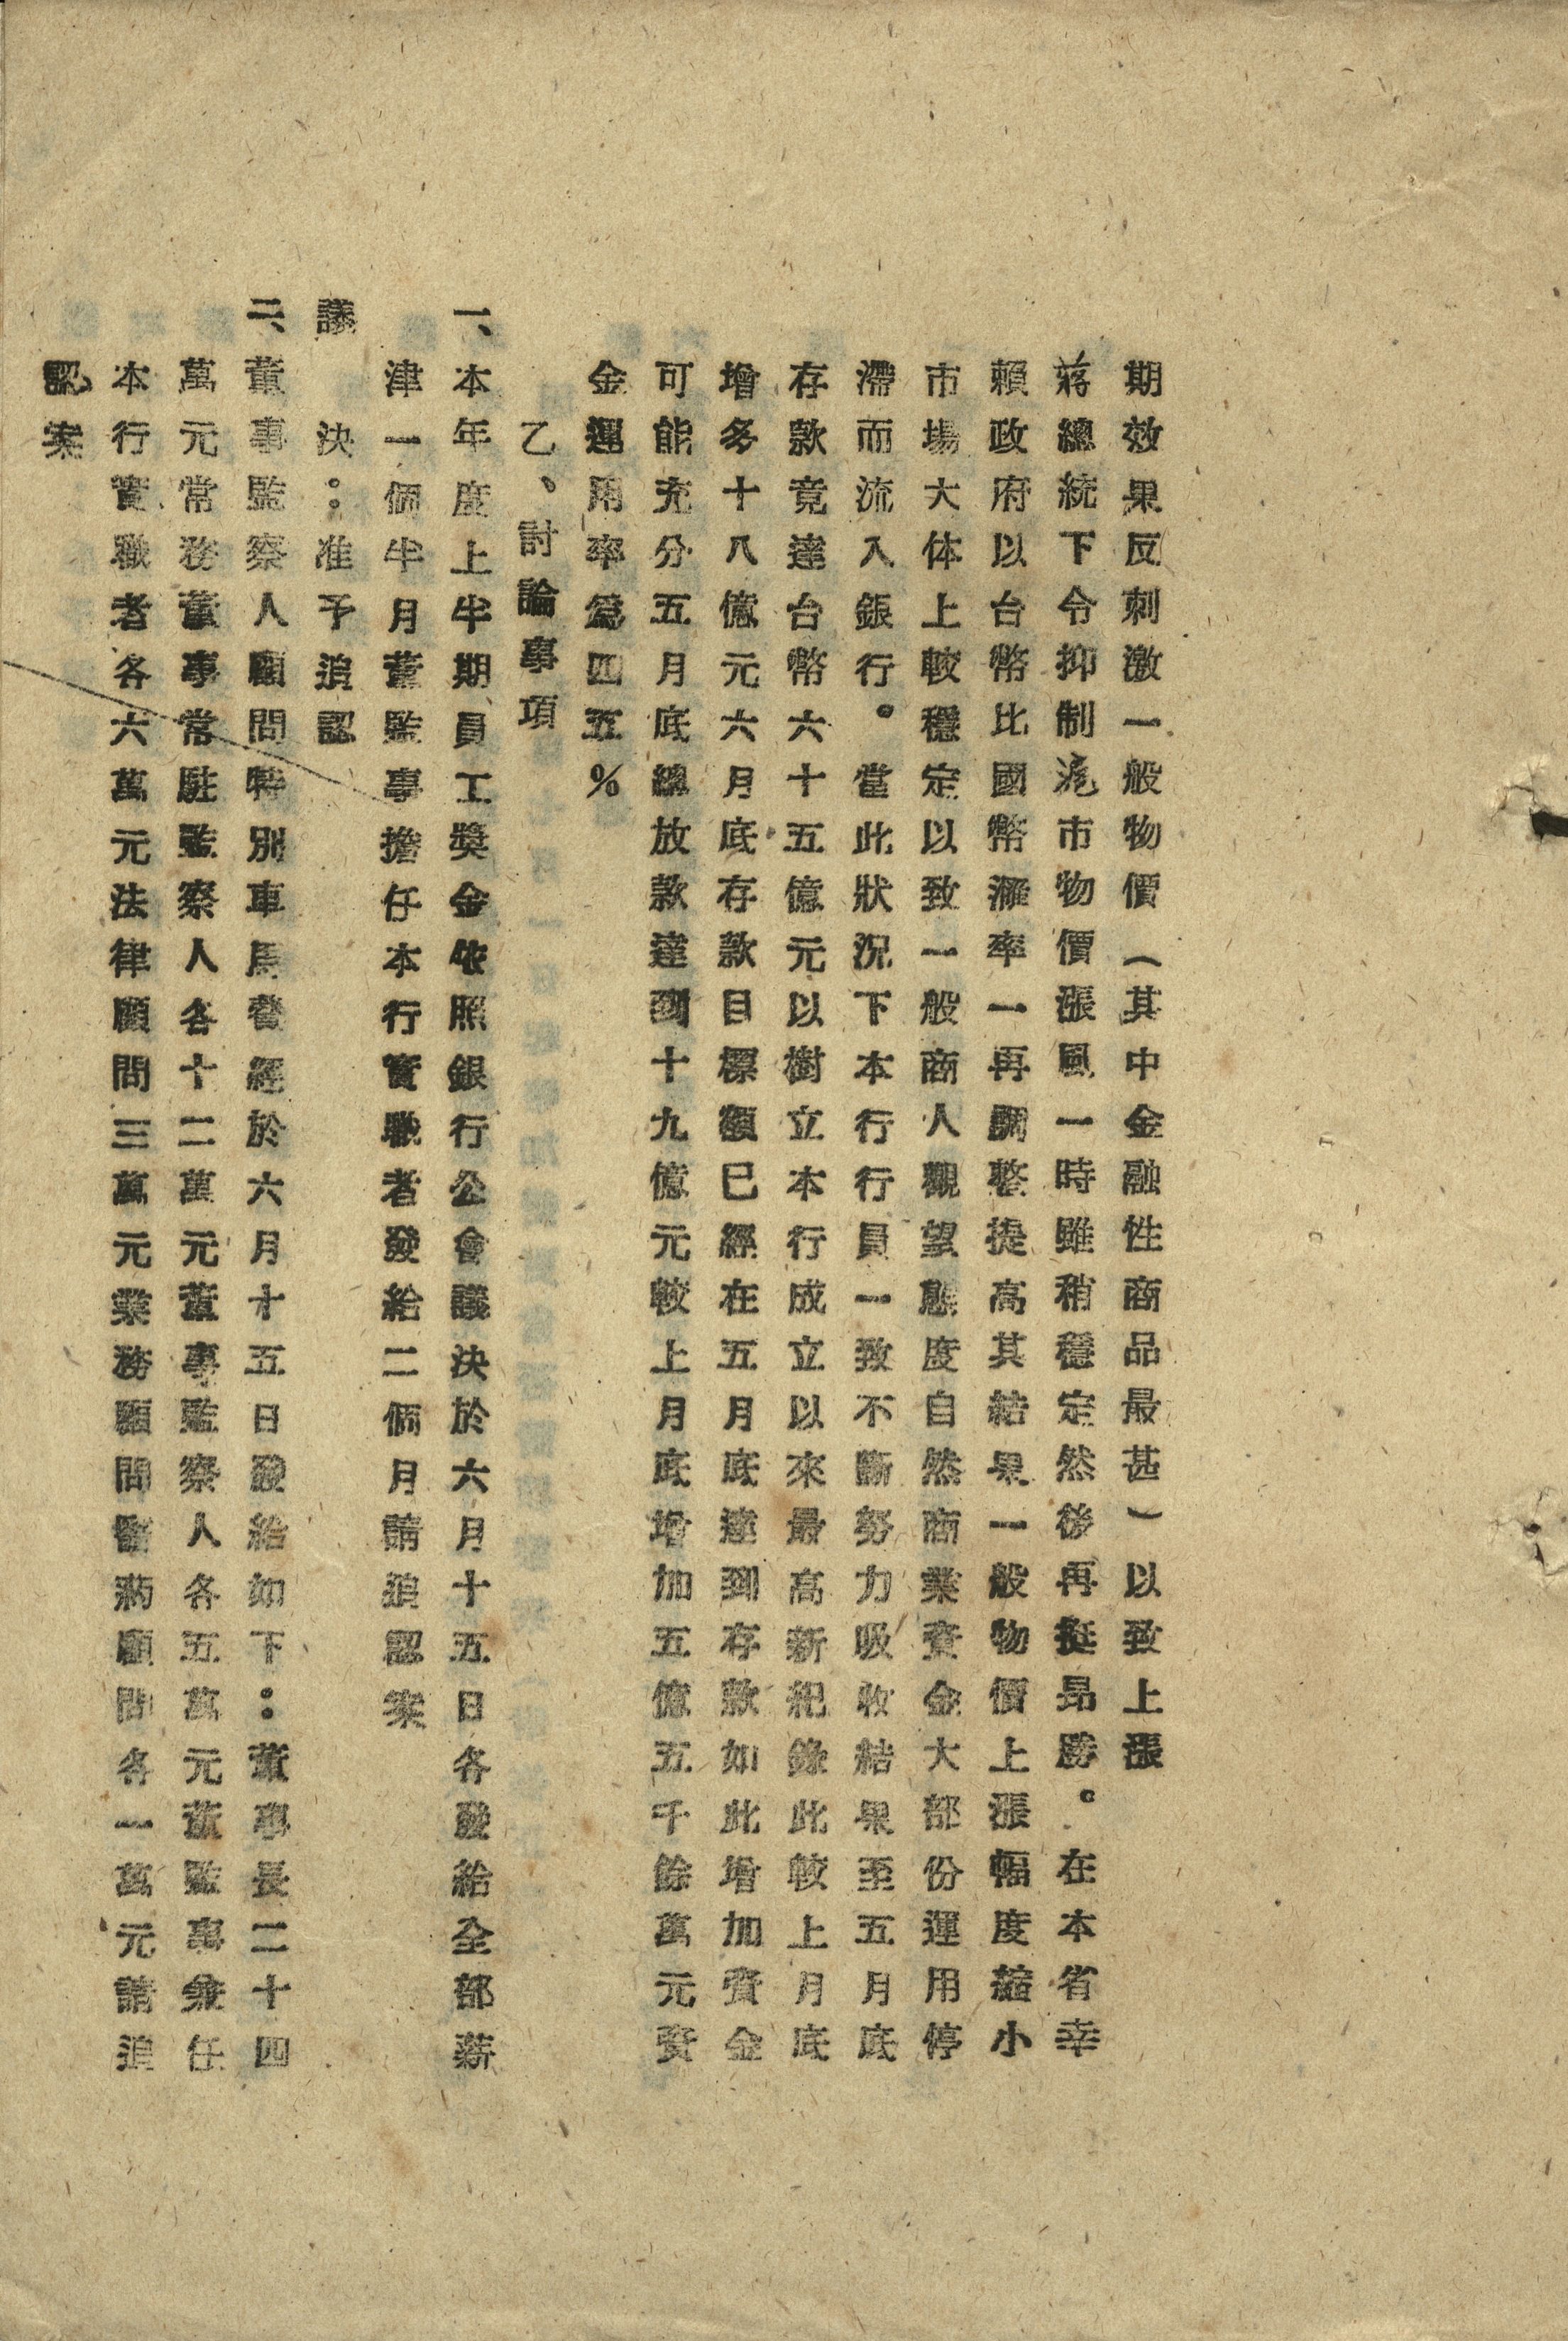 期效果反刺激一般物價（其中金融性商品最甚）以致上漲
蔣總統下令抑制滬市物價漲風一時雖稍穩定然後再挺昂勝。在本省幸
賴政府以台幣比國幣滙率一再調整提高其結果一般物價上漲幅度縮小
市場大体上較穩定以致一般商人觀望態度自然商業資金大部份運用停
滯而流入銀行。當此狀況下本行行員一致不斷努力吸收結果至五月底
存款竟達台幣六十五億元以樹立本行成立以來最高新紀錄此較上月底
增多十八億元六月底存款目標額已經在五月底達到存款如此增加資金
可能充分五月底總放款達到十九億元較上月底增加五億五千餘萬元資
金運用率爲四五%
乙、討論事項
一、本年度上半期員工獎金依照銀行公會議決於六月十五日各發給全部薪
津一個半月董監事擔任本行實職者發給二個月請追認案
議　決：准予追認
二、董事監察人顧問特別車馬費經於六月十五日發給如下：董事長二十四
萬元常務董事常駐監察人各十二萬元董事監察人各五萬元董監事兼任
本行實職者各六萬元法律顧問三萬元業務顧問醫藥顧問各一萬元請追
認案